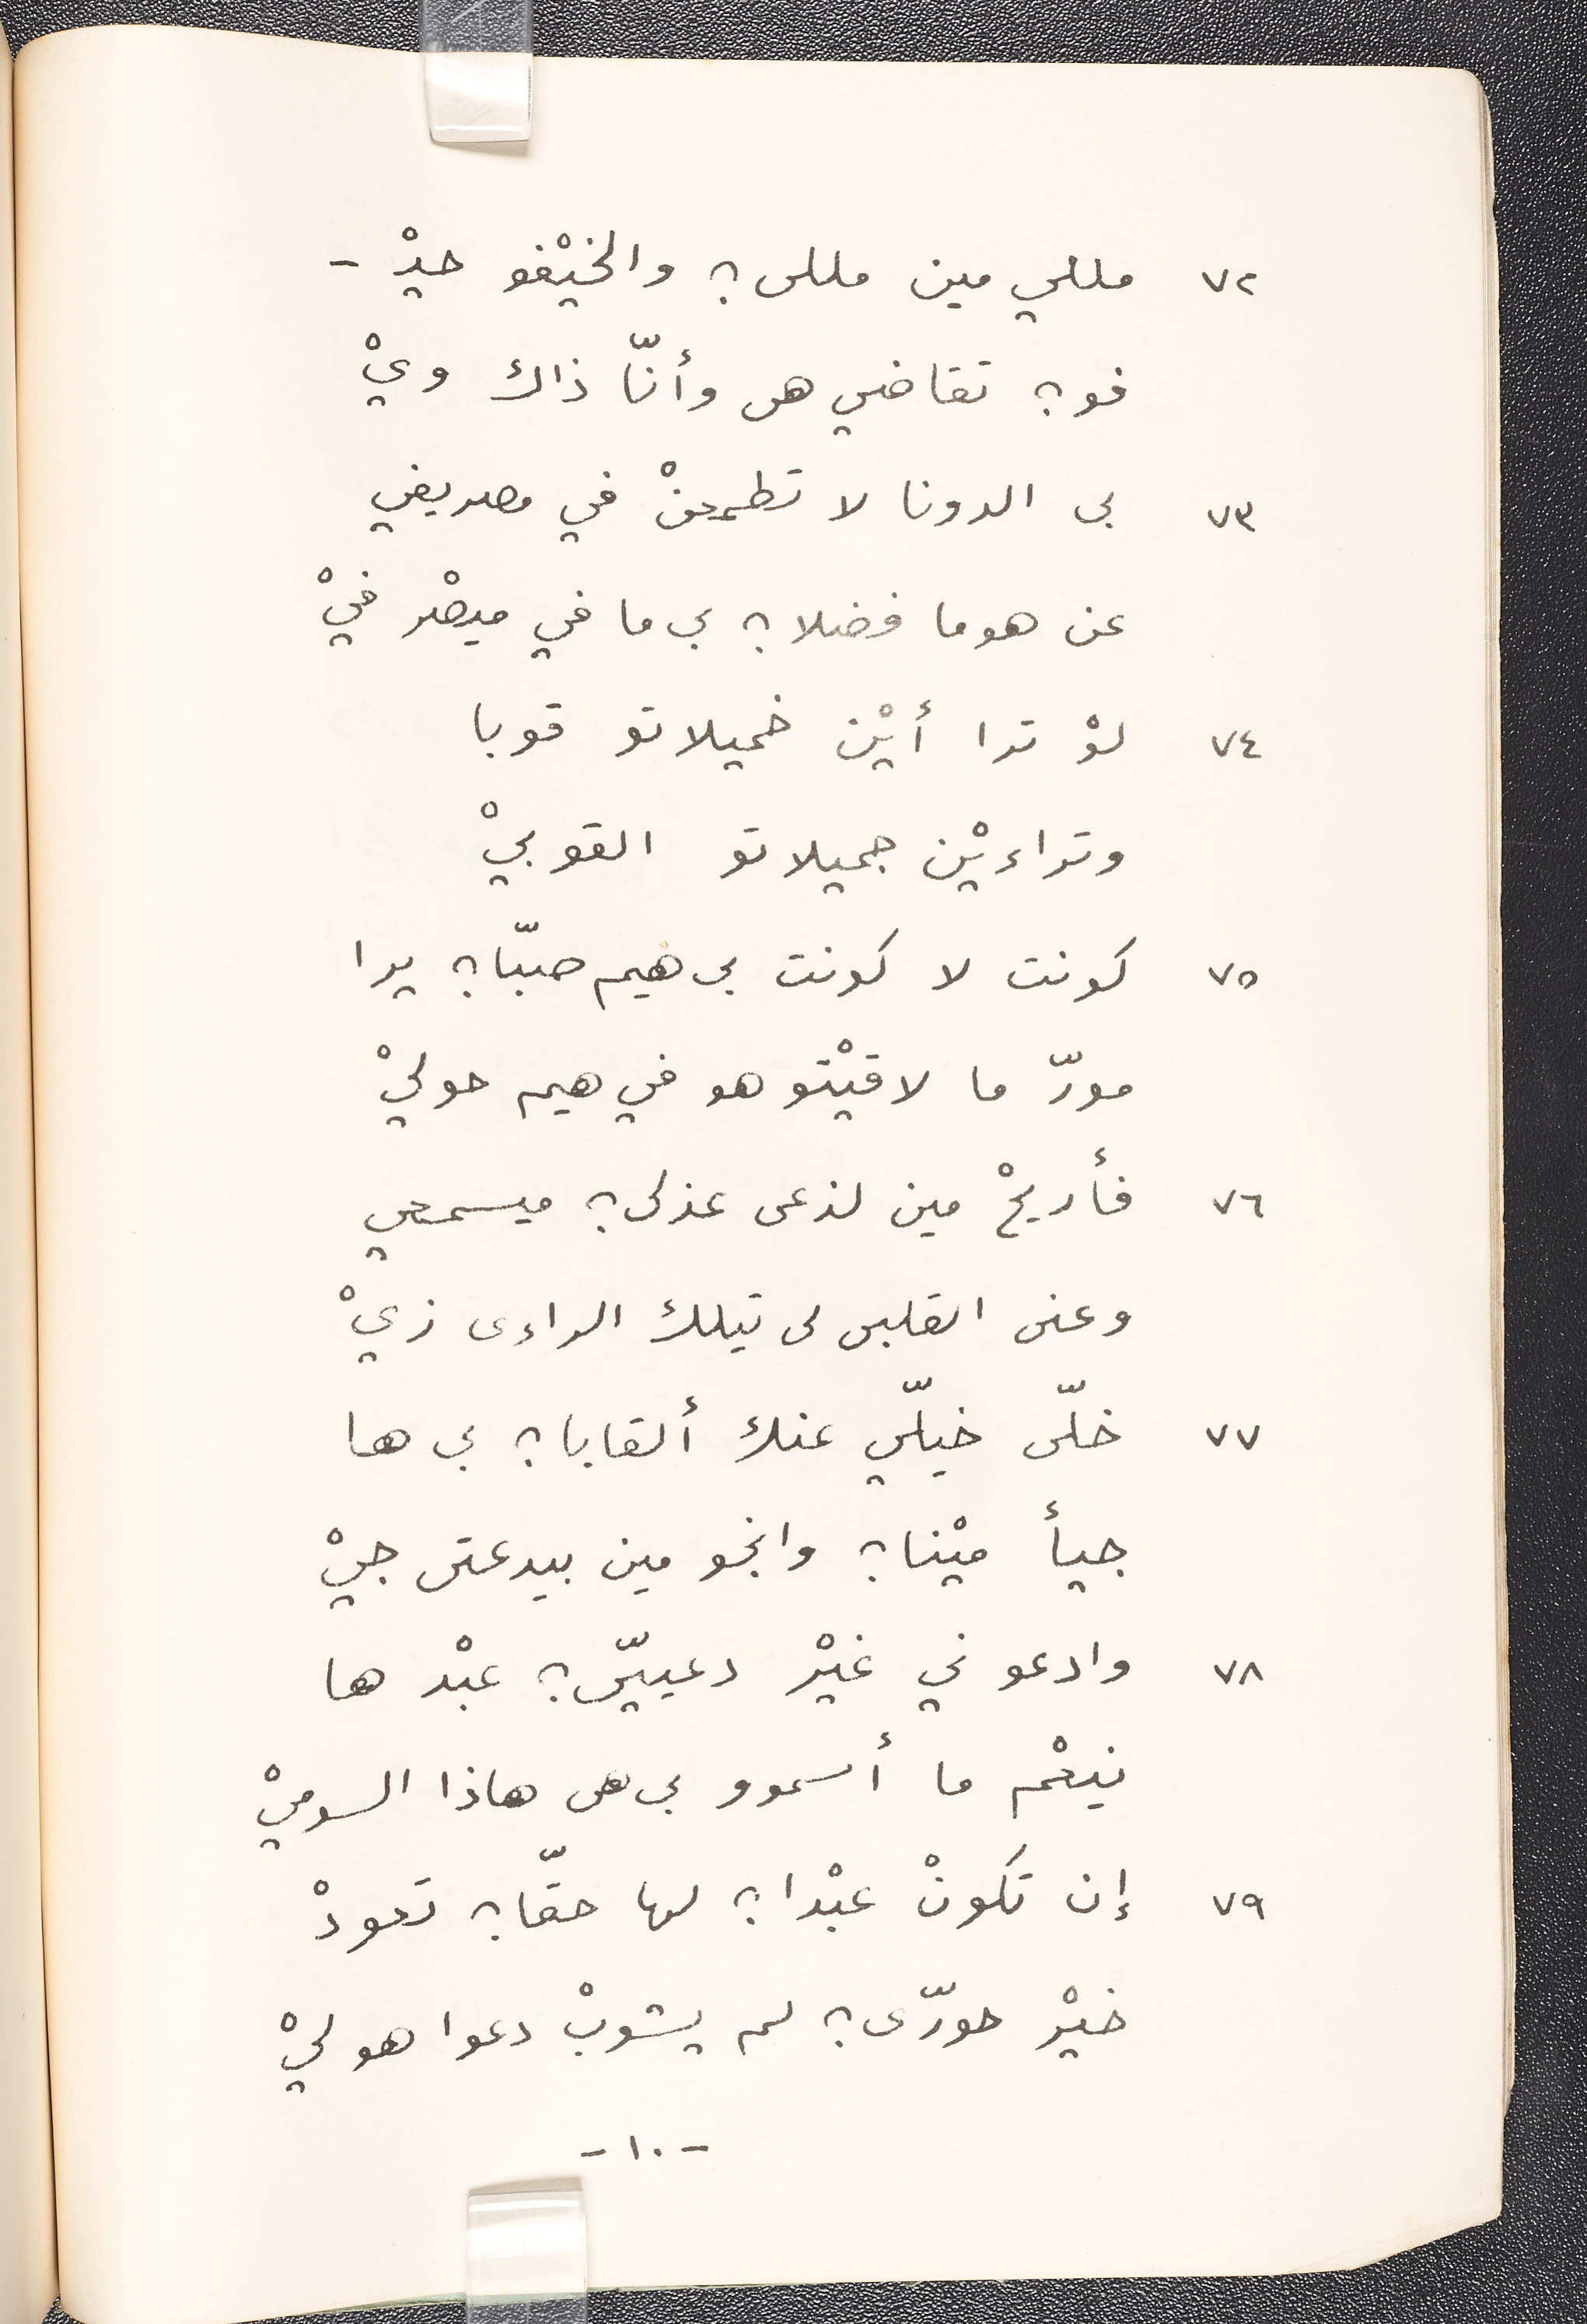 ٧٢ مللي مين مللى؟ والخيْفو حيدْ -
فو؟ تقاضي هى وأنّا ذاك ويْ
٧٣ بى الدونا لا تطمعنْ في مصريفي
عن هوما فضلا؟ بى ما في ميصْر فيْ
٧٤ لوْ ترا أيْن خميلاتو قوبا
وتراءيْن جميلاتو القوبيْ
٧٥ كونت لا كونت بى هيم صببّا؟ يرا
مورّ ما لاقيْتو هو في هيم حوليْ
٧٦ فأريحْ مين لذعى عذلى؟ ميسمعي
وعنى القلبى لى تيلك الراءى زيْ
٧٧ خلّى خيلّي عنك ألقابا؟ بى ها
جيأ ميْنا؟ وانجو مين بيدعتى جيْ
٧٨ وادعوني غيْر دعييّى؟ عبْدها
نيعْم ما أسموو بى هى هاذا السوميْ
٧٩ إن تكونْ عبْدا؟ لها حقّا؟ تعودْ
خيْر حورّى؟ لم يشوبْ دعوا هو ليْ
-١٠-